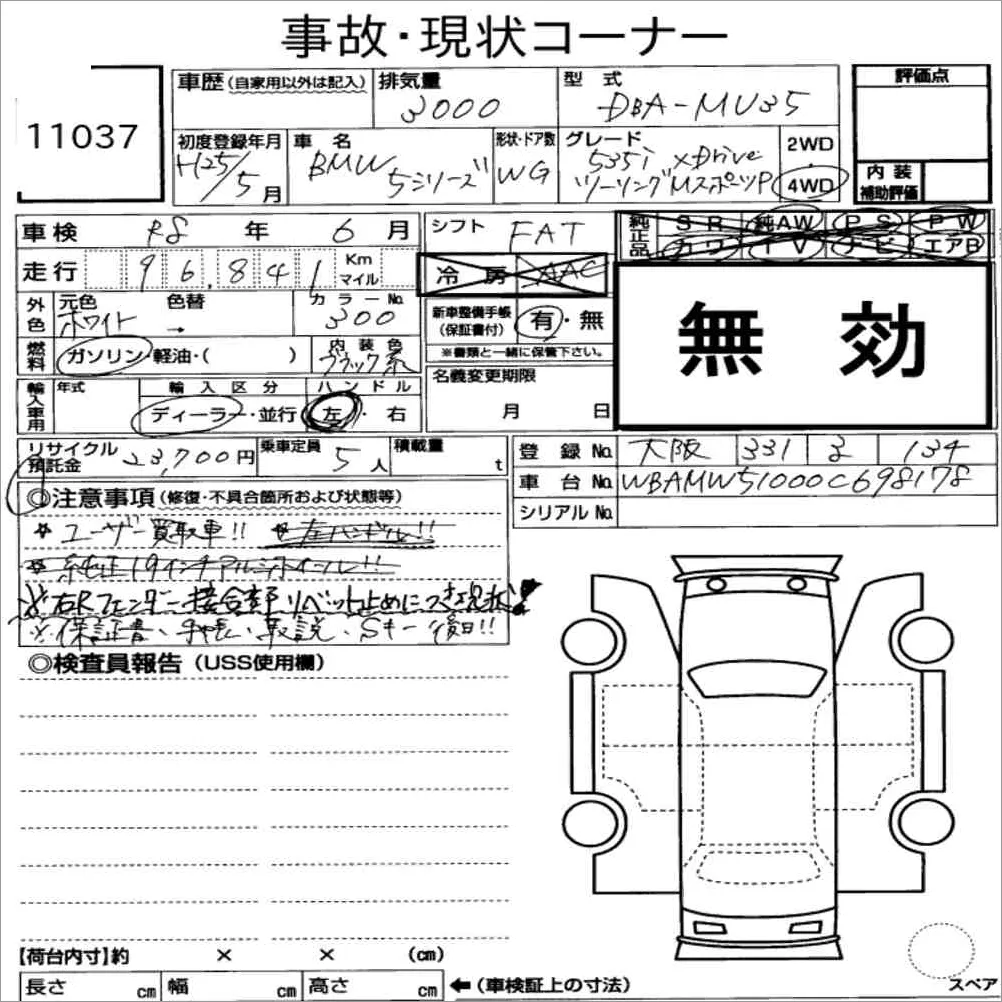 事故・現状コーナー
11037
車歴(自家用以外は記入)
排気量 3000
型式 DBA-MU35
評価点
初度登録年月 H25/5月
車名 BMW 5シリーズ
形状・ドア数 WG
グレード 535i xDrive ツーリングMスポーツP
2WD
4WD
内装補助評価
車検 R8年 6月
シフト FAT
純正品 SR 純AW PS PW
カワ TV ナビ エアB
走行 96,841 Km マイル
冷房 AAC
外色 元色 ホワイト 色替 → カラーNo. 300
新車整備手帳(保証書付) 有・無
※書類と一緒に保管下さい。
無効
燃料 ガソリン・軽油・( )
内装色 ブラック系
名義変更期限 月 日
輸入車用 年式 輸入区分 ディーラー・並行 ハンドル 左・右
リサイクル預託金 23,700円
乗車定員 5人
積載量 t
登録No. 大阪 331 134
車台No. WBAMW51000C698178
シリアルNo.
◎注意事項(修復・不具合箇所および状態等)
★ユーザー買取車!! ★左ハンドル!!
★純正19インチアルミホイール!!
※右Rフェンダー接合部リベット止めにつき現状!
※保証書、手帳、取説、Sキー後日!!
◎検査員報告(USS使用欄)
【荷台内寸】約 × × (cm)
長さ cm 幅 cm 高さ cm ←(車検証上の寸法)
スペア